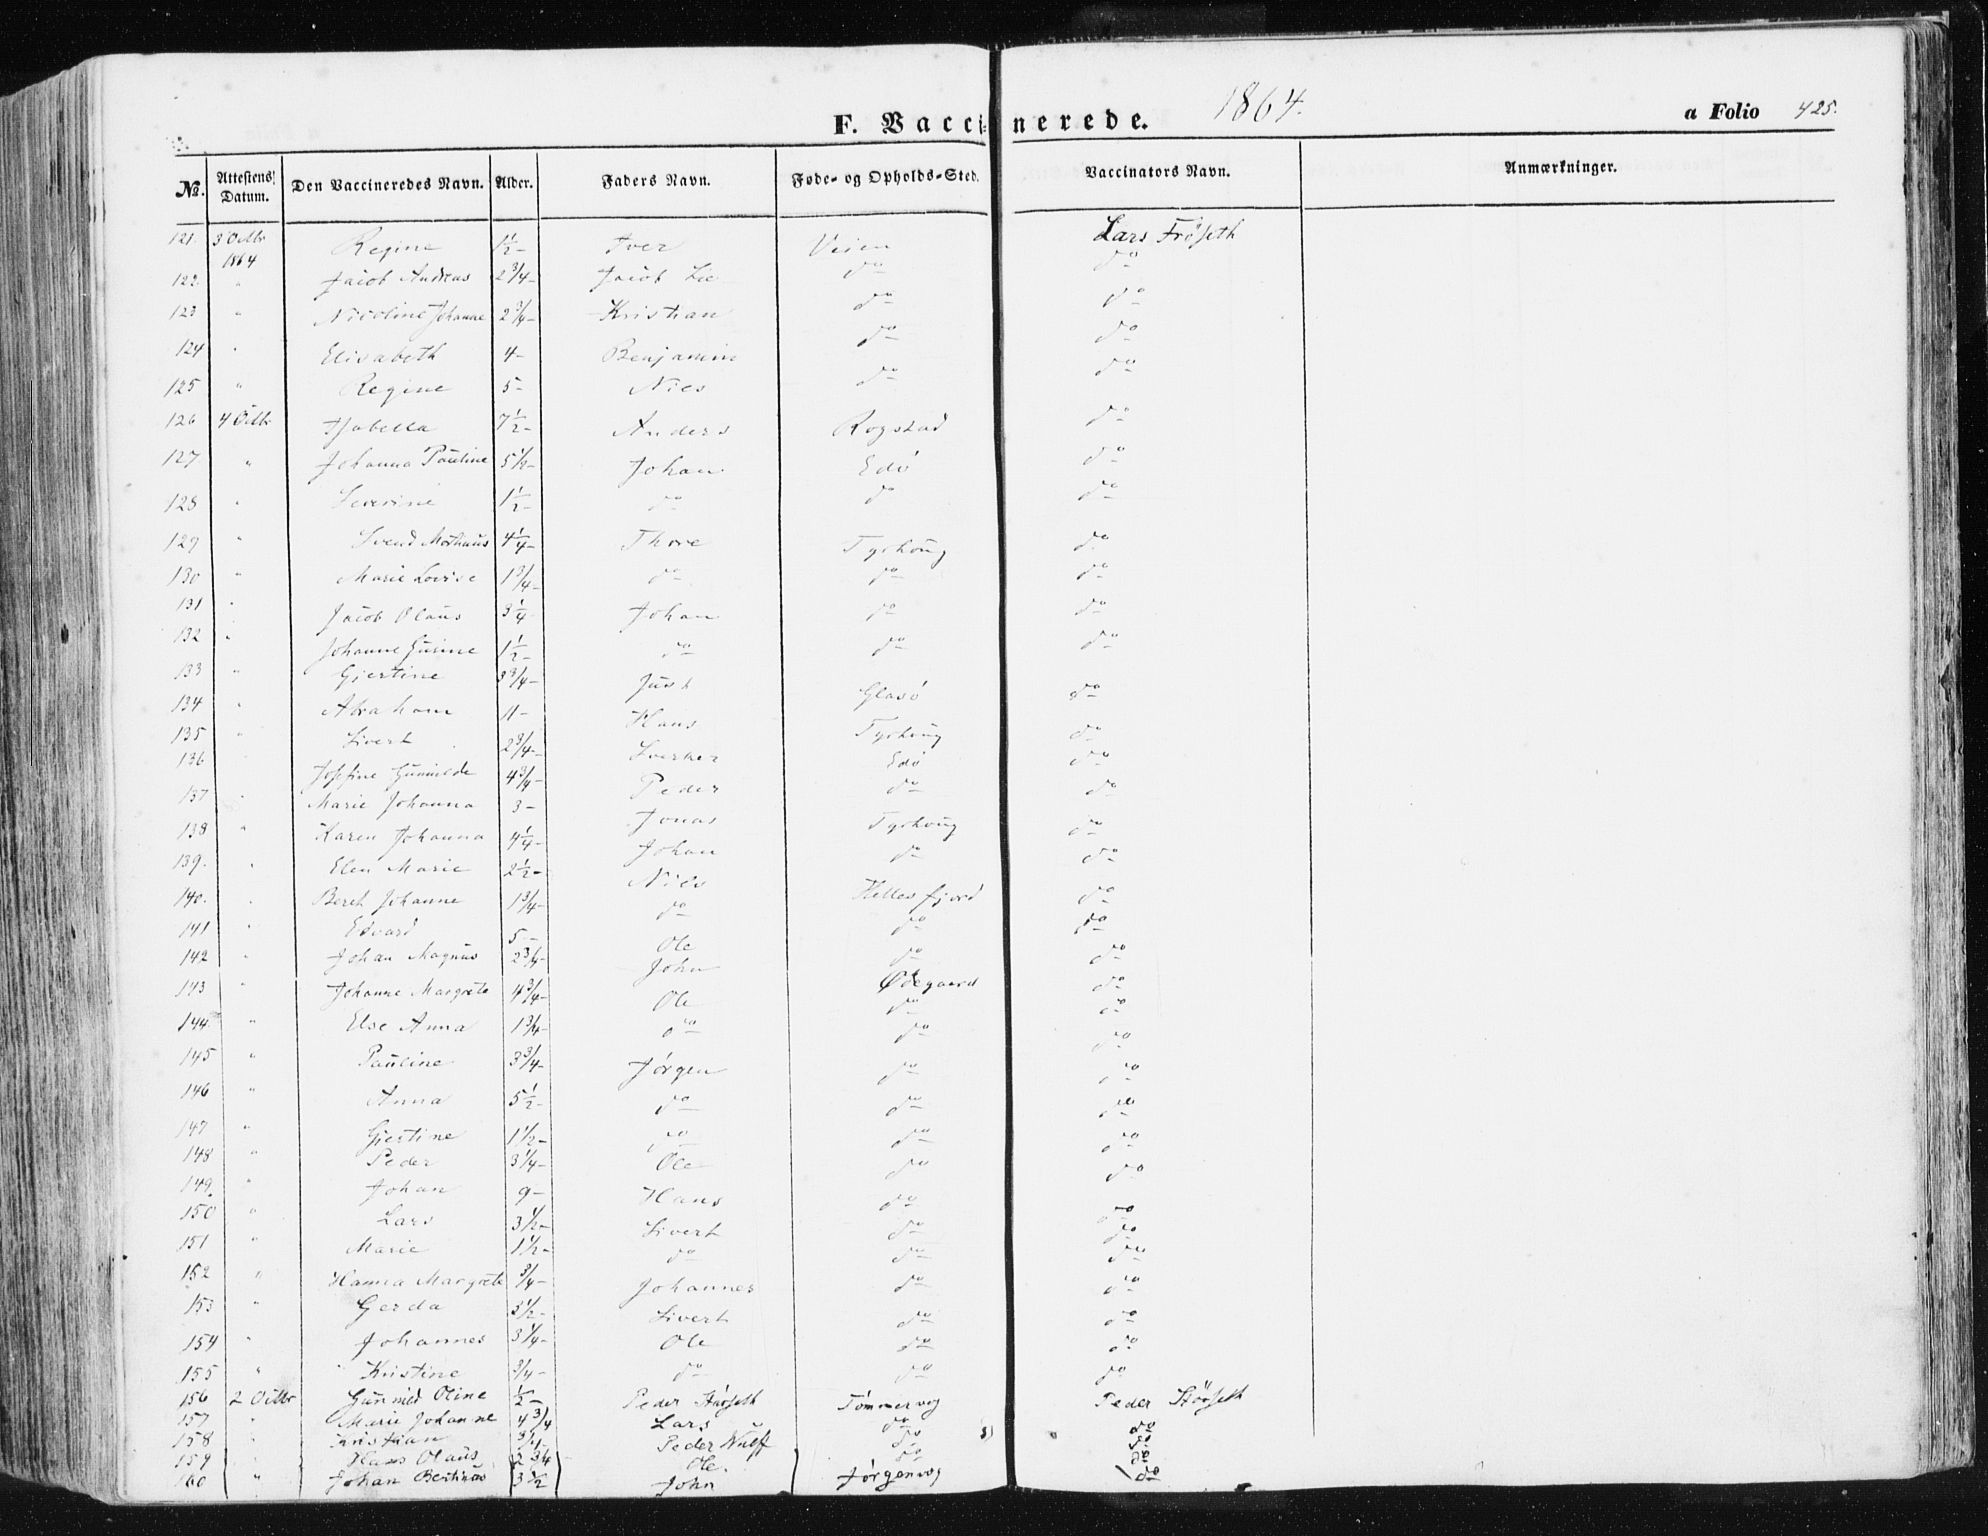 F. Vaccinerede. 1864. a Folio 425.
No. Attestens Datum. Den Vaccineredes Navn. Alder. Faders Navn. Føde- og Opholds-Sted. Vaccinators Navn. Anmærkninger.
121. 3 Octbr 1864 Regine 1½- Iver Veien Lars Fröseth
122. " Jacob Andreas 2¾- Jacob Lie do do
123 " Nicoline Johanne 2¾- Kristian do do
124 " Elisabeth 4- Benjamin do do
125 " Regine 5- Niels do do
126 4 Octbr Isabella 7½- Anders Rogstad do
127 " Johanna Pauline 5½- Johan Edö do
128 " Severine 1½- do do do
129 " Svend Mathæus 4¼- Thore Tyrhoug do
130 " Marie Lovise 1¾- do do do
131 " Jacob Olaus 3¼ Johan do do
132 " Johanne Gurine 1½- do do do
133 " Gjertine 3¾- Just Glasö do
134 " Abraham 11- Hans Tyrhoug do
135 " Sivert 2¾- Sverker Edö do
136 Josefine Gunnilde 4¾- Peder do do
137 " Marie Johanna 3- Jonas Tyrhoug do
138 " Karen Johanna 4¼- Johan do do
139. " Elen Marie 2½- Niels Hellesfjord do
140. " Beret Johanne 1¾- do do do
141 " Edvard 5- Ole do do
142 " Johan Magnus 2¾- John Ødegaard do
143 " Johanne Margrete 4¾- Ole do do
144. " Else Anna 1¾- do do do
145 " Pauline 3¾- Jörgen do do
146 " Anna 5½- do do do
147 " Gjertine 1½- do do do
148 " Peder 3¼- Ole do do
149. " Johan 9- Hans do do
150 " Lars 3½- Sivert do do
151 " Marie 1½- do do do
152 " Hanna Margrete ¾- Johannes do do
153 " Gerda 3½- Sivert do do
154 " Johannes 3¼- Ole do do
155 " Kristine ¾- do do do
156 2 Octbr Gunnild Oline ½- Peder Störseth Tömmervog Peder Störseth
157 " Marie Johanne 4¾ Lars do do
158 " Kristian ¾- Peder Wulff do do
159 " Hans Olaus 2¾ Ole do do
160 " Johan Bertinus 3½ John Jørgenvog do